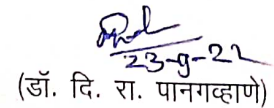 23-9-22
(डॉ. दि. रा. पानगव्हाणे)